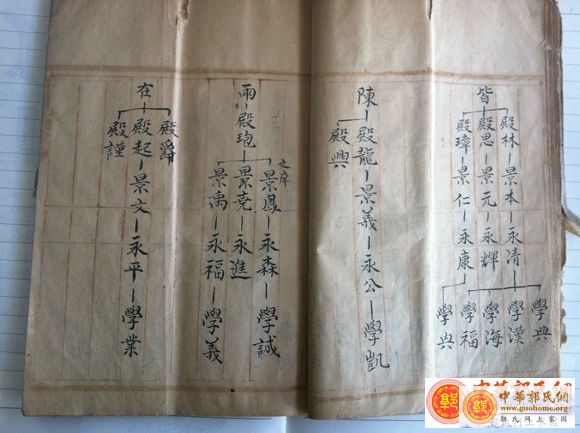 皆
殿林 景本 永清
殿思 景元 永輝
殿璋 景仁 永康
學典
學漢
學海
學福
學典
陳 殿龍 景義 永公 學凱
殿興
雨 殿
景鳳 永森 學誠
景堯 永進
景禹 永福 學義
在 殿起 景文 永平 學業
殿爵
殿謹
中華郭氏網
www.guohome.org
郭氏网上家園